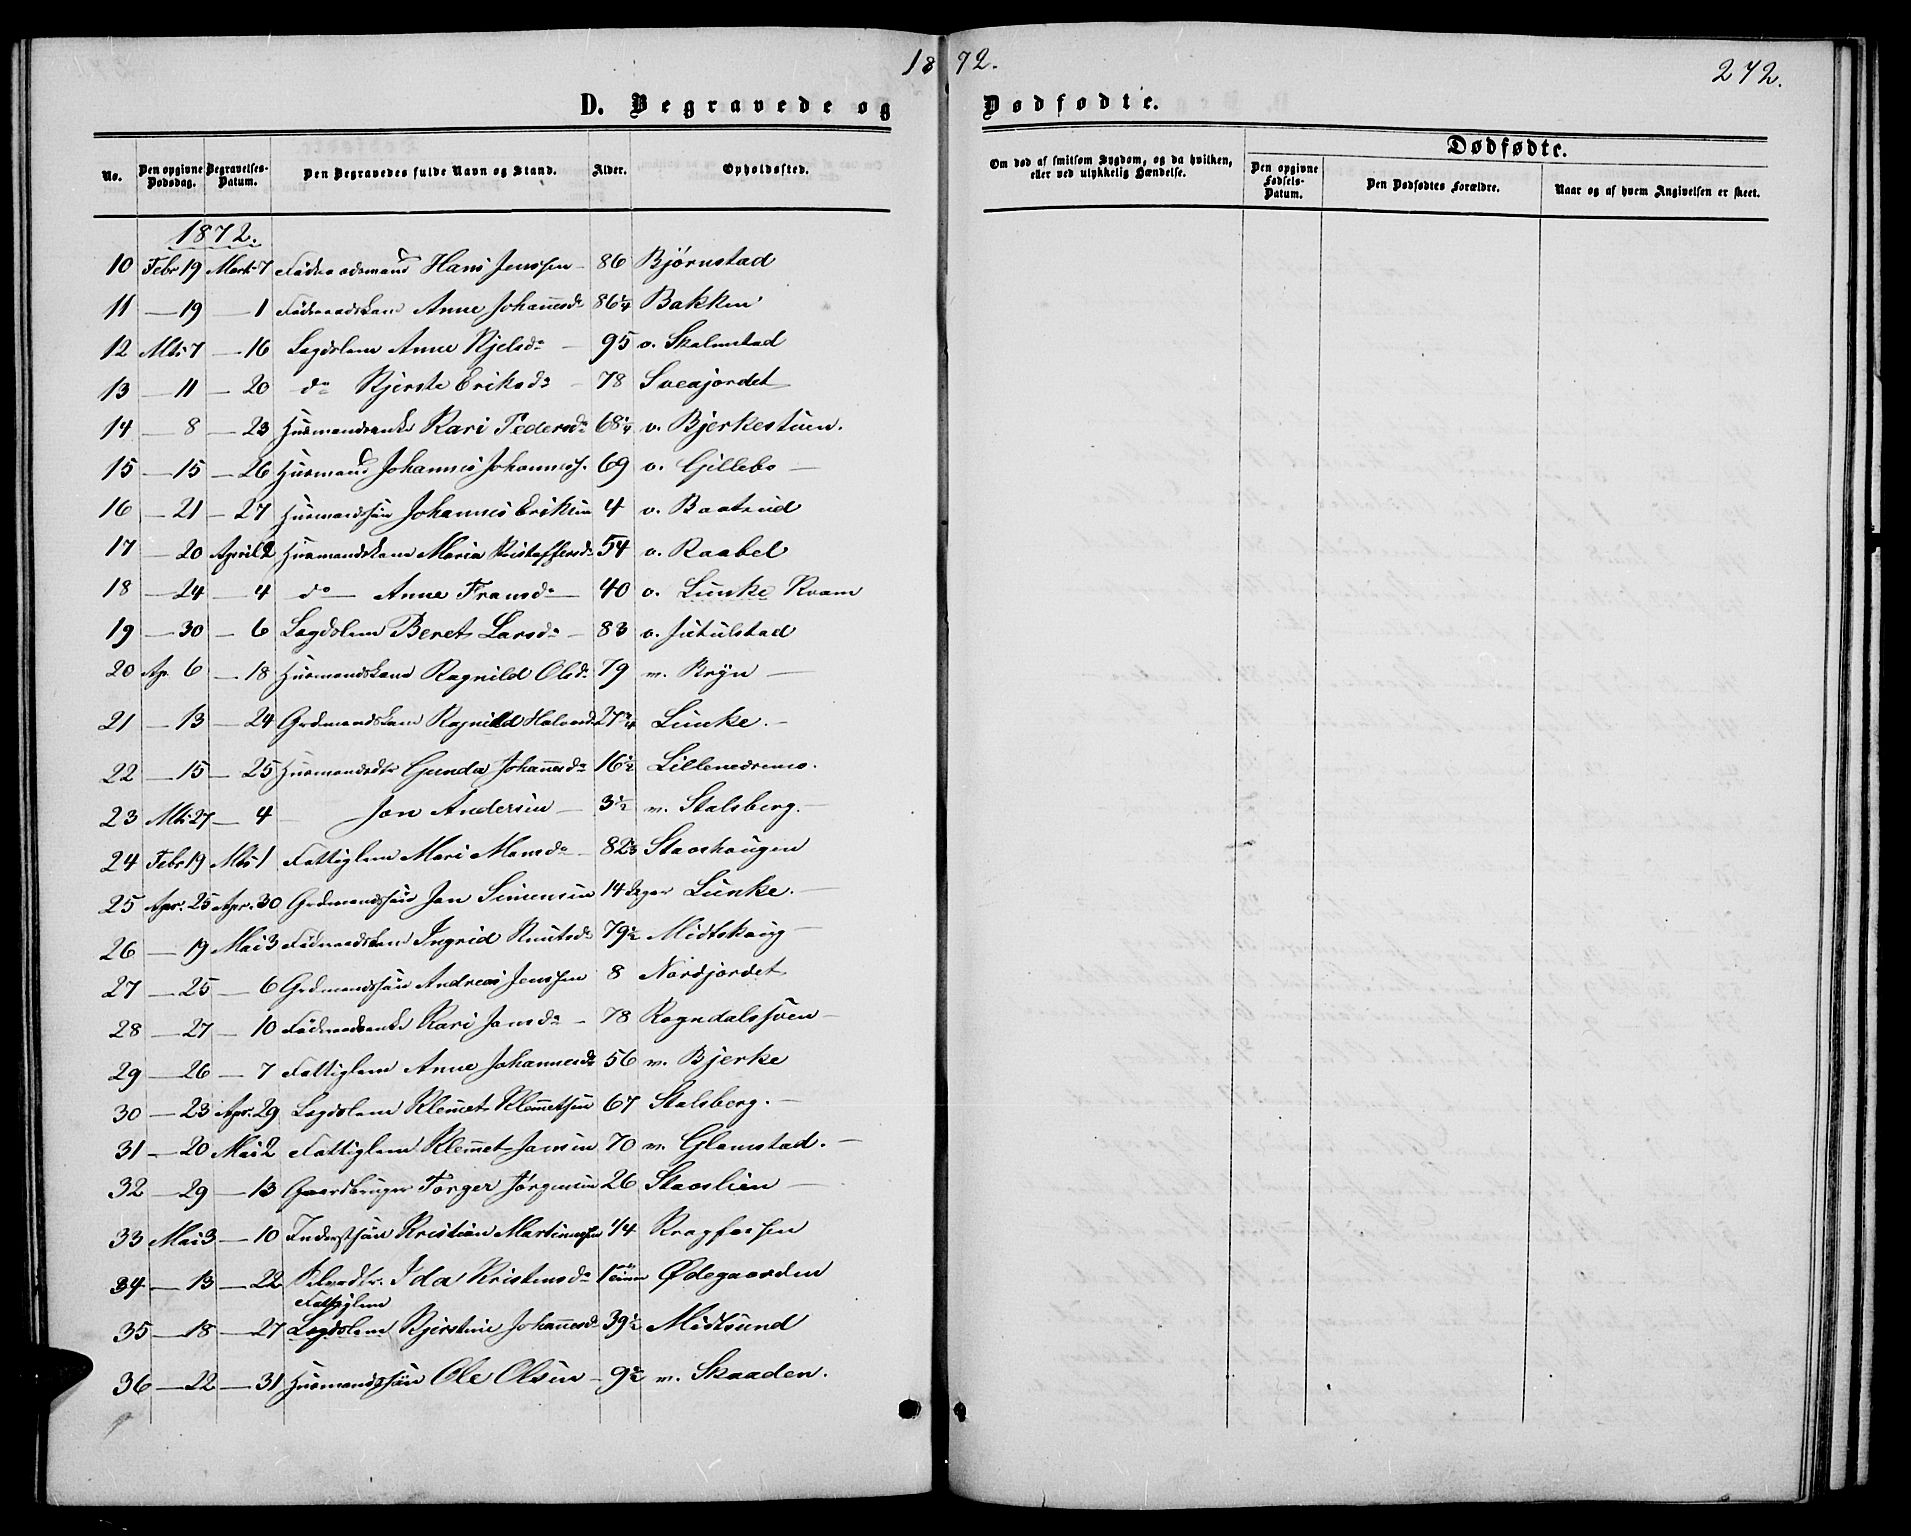 1872.
272.
D. Begravede og Dødfødte.
No.
Den opgivne Dødsdag.
Begravelses-Datum.
Den Begravedes fulde Navn og Stand.
Alder.
Opholdssted.
Om død af smitsom Sygdom, og da hvilken, eller ved ulykkelig Hændelse.
Dødfødte.
Den opgivne Fødsels-Datum.
Den Dødfødtes Forældre.
Naar og af hvem Angivelsen er skeet.
1872.
10 Febr 19 Marts 7 Føderaadsmand Hans Jenssen 86 Bjørnstad
11 — 19 — 1 Føderaadskone Anne Johannesdr 86 1/4 Bakken
12 Mts 7 — 16 Lægdslem Anne Kjelsdr 95 o. Skalmstad
13 — 11 — 20 do Kjerste Eriksdr 78 Sveajordet
14 — 8 — 23 Husmandsenke Kari Pedersdr 68 1/4 v. Bjerkestuen.
15 — 15 — 26 Husmand Johannes Johanness. 69 v. Gillebo
16 — 21 — 27 Husmandssøn Johannes Eriksen 4 v. Baatrud
17 — 20 April 2 Husmandskone Maria Kristoffersdr 54 v. Raabel
18 — 24 — 4 do Anne Fransdr 40 o. Lunke Kvam
19 — 30 — 6 Lægdslem Beret Larsdr 83 o. Jutulstad
20 Ap. 6 — 18 Husmandskone Ragnild Olsdr 79 m. Bryn
21 — 13 — 24 Grdmandskone Ragnild Halvorsdr 27 3/4 Lunke.
22 — 15 — 25 Husmandsdtr Gunda Johannesdr 16 1/2 Lillenedrems.
23 Mts 27 — 4 Jon Andersen 3 1/2 m. Stalsberg.
24 Febr 19 Mts 1 Fattiglem Mari Monsdr 82 2/3 Staashaugen
25 Apr. 25 Apr. 30 Grdmandssøn Jon Simensen 14 Dager Lunke.
26 — 19 Mai 3 Føderaadskone Ingrid Knutsdr 79 1/2 Midtskaug
27 — 25 — 6 Grdmandssøn Andreas Jenssen 8 Nordjordet
28 — 27 — 10 Føderaadsenke Kari Jonsdr 78 Rogndalssven
29 — 26 — 7 Fattiglem Anne Johannesdr 56 m. Bjerke
30 — 23 Apr. 29 Lægdslem Klemet Klemetsen 67 Stalsberg.
31 — 20 Mai 2 Fattiglem Klemet Jonsen 70 m. Glomstad.
32 — 29 — 13 Gaardbruger Torger Jørgensen 26 Staaslien
33 Mai 3 — 10 Inderstsøn Kristian Martinussen 1/4 Kragfossen
34 — 13 — 22 Ida Kristensdr 1 Ødegaarden
Fattiglem
35 — 18 — 27 Lægdslem Kjerstine Johannesdr 39 1/2 Midtsund
36 — 22 — 31 Husmandssøn Ole Olsen 9 1/2 m. Skaaden.